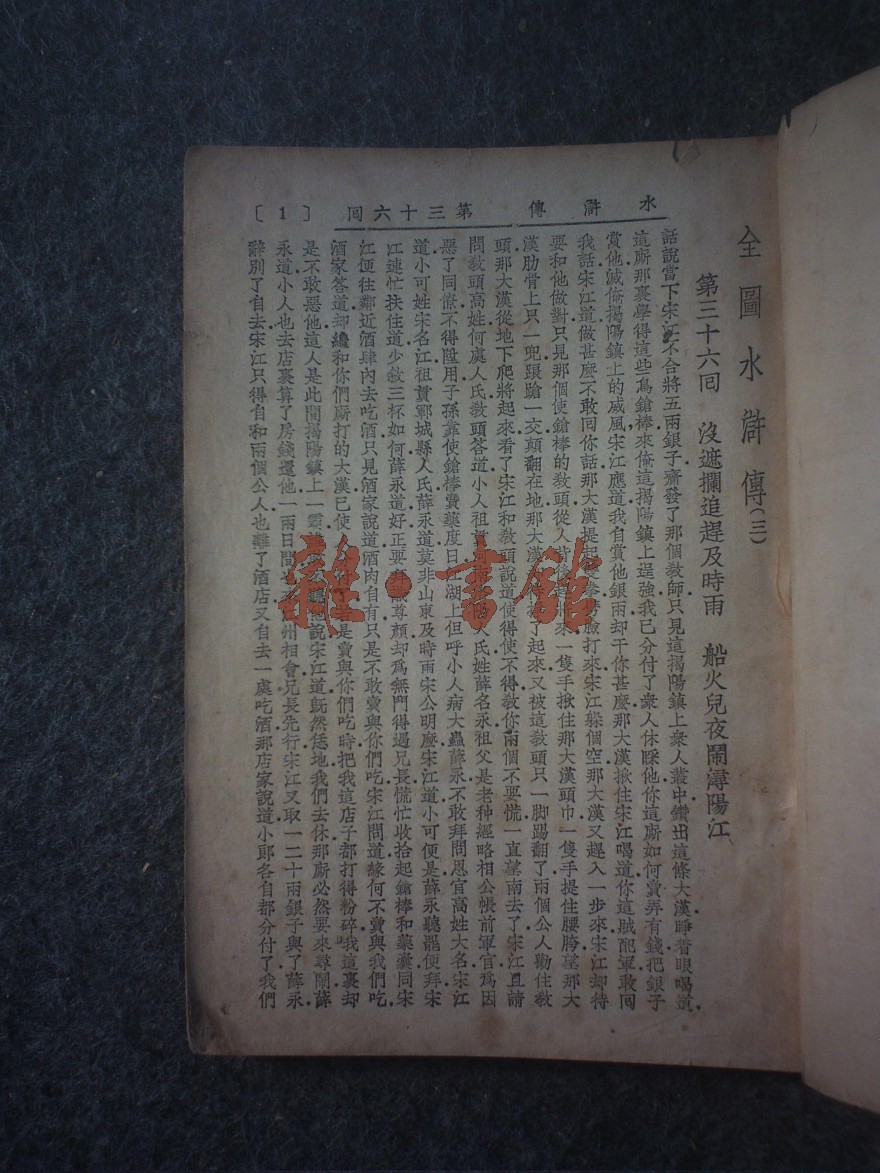 全圖水滸傳(三)
第三十六回 沒遮攔追趕及時雨 船火兒夜鬧潯陽江
水滸傳 第三十六回 〔1〕
話說當下宋江不合將五兩銀子齎發了那個教師只見這揭陽鎮上衆人叢中鑽出這條大漢睜着眼喝道
這厮那裏學得這些鳥鎗棒來俺這揭陽鎮上逞強我已分付了衆人休睬他你這厮如何賣弄有錢把銀子
賞他滅俺揭陽鎮上的威風宋江應道我自賞他銀兩却干你甚麽那大漢揪住宋江喝道你這賊配軍敢回
我話宋江道做甚麽不敢回你話那大漢提起雙拳劈臉打來宋江躲個空那大漢又趕入一步來宋江却待
要和他做對只見那個使鎗棒的教頭從人背後趕將來一隻手揪住那大漢頭巾一隻手提住腰胯望那大
漢肋骨上只一兜踉蹌一交顛翻在地那大漢却待掙扎起來又被這教頭只一脚踢翻了兩個公人勸住教
頭那大漢從地下爬將起來看了宋江和教頭說道使得使不得教你兩個不要慌一直望南去了宋江且請
問教頭高姓何處人氏教頭答道小人祖貫人氏姓薛名永祖父是老种經略相公帳前軍官爲因
惡了同僚不得陞用子孫靠使鎗棒賣藥度日江湖上但呼小人病大蟲薛永不敢拜問恩官高姓大名宋江
道小可姓宋名江祖貫鄆城縣人氏薛永道莫非山東及時雨宋公明麽宋江道小可便是薛永聽罷便拜宋
江連忙扶住道少敘三杯如何薛永道好正要拜識尊顏却爲無門得遇兄長慌忙收拾起鎗棒和藥囊同宋
江便往鄰近酒肆內去吃酒只見酒家說道酒肉自有只是不敢賣與你們吃宋江問道緣何不賣與我們吃
酒家答道却纔和你們厮打的大漢已使是賣與你們吃時把我這店子都打得粉碎我這裏却
是不敢惡他這人是此間揭陽鎮上一霸他說宋江道旣然恁地我們去休那厮必然要來尋鬧薛
永道小人也去店裏算了房錢還他一兩日間州相會兄長先行宋江又取一二十兩銀子與了薛永
辭別了自去宋江只得自和兩個公人也離了酒店又自去一處吃酒那店家說道小郎各自都分付了我們
雜·書館